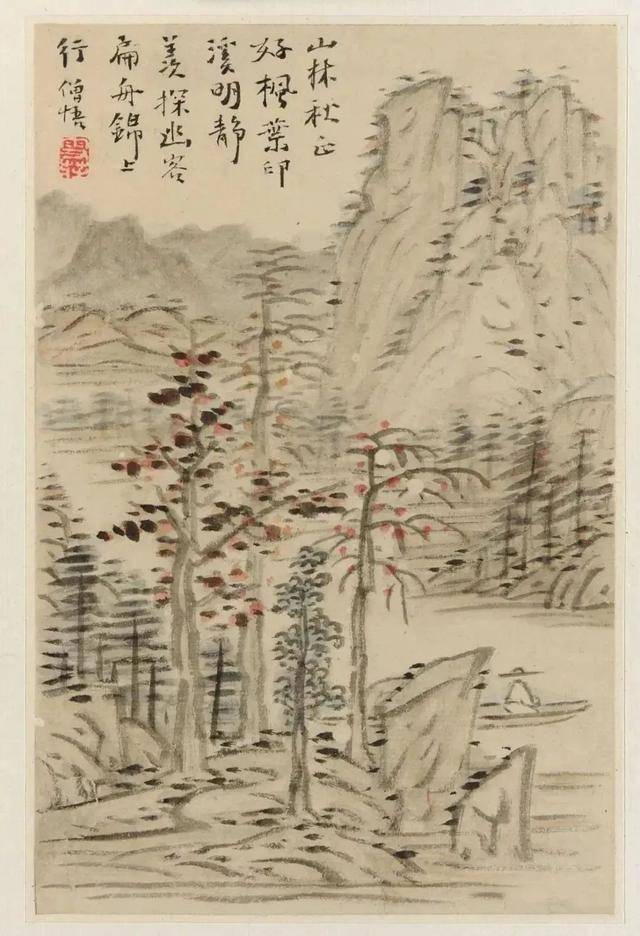 山林秋正
好枫葉印
溪明静
羡探幽客
扁舟錦上
行 僧悟